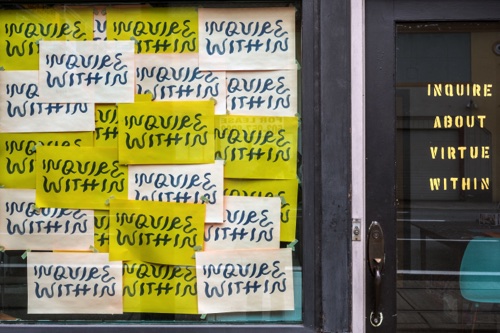 INQUIRE
WITHIN
INQUIRE
WITHIN
INQUIRE
WITHIN
INQUIRE
WITHIN
INQUIRE
WITHIN
INQUIRE
WITHIN
INQUIRE
WITHIN
INQUIRE
WITHIN
INQUIRE
WITHIN
INQUIRE
WITHIN
INQUIRE
WITHIN
INQUIRE
WITHIN
INQUIRE
WITHIN
INQUIRE
WITHIN
INQUIRE
WITHIN
INQUIRE
WITHIN
INQUIRE
WITHIN
FOR LEASE
INQUIRE
ABOUT
VIRTUE
WITHIN